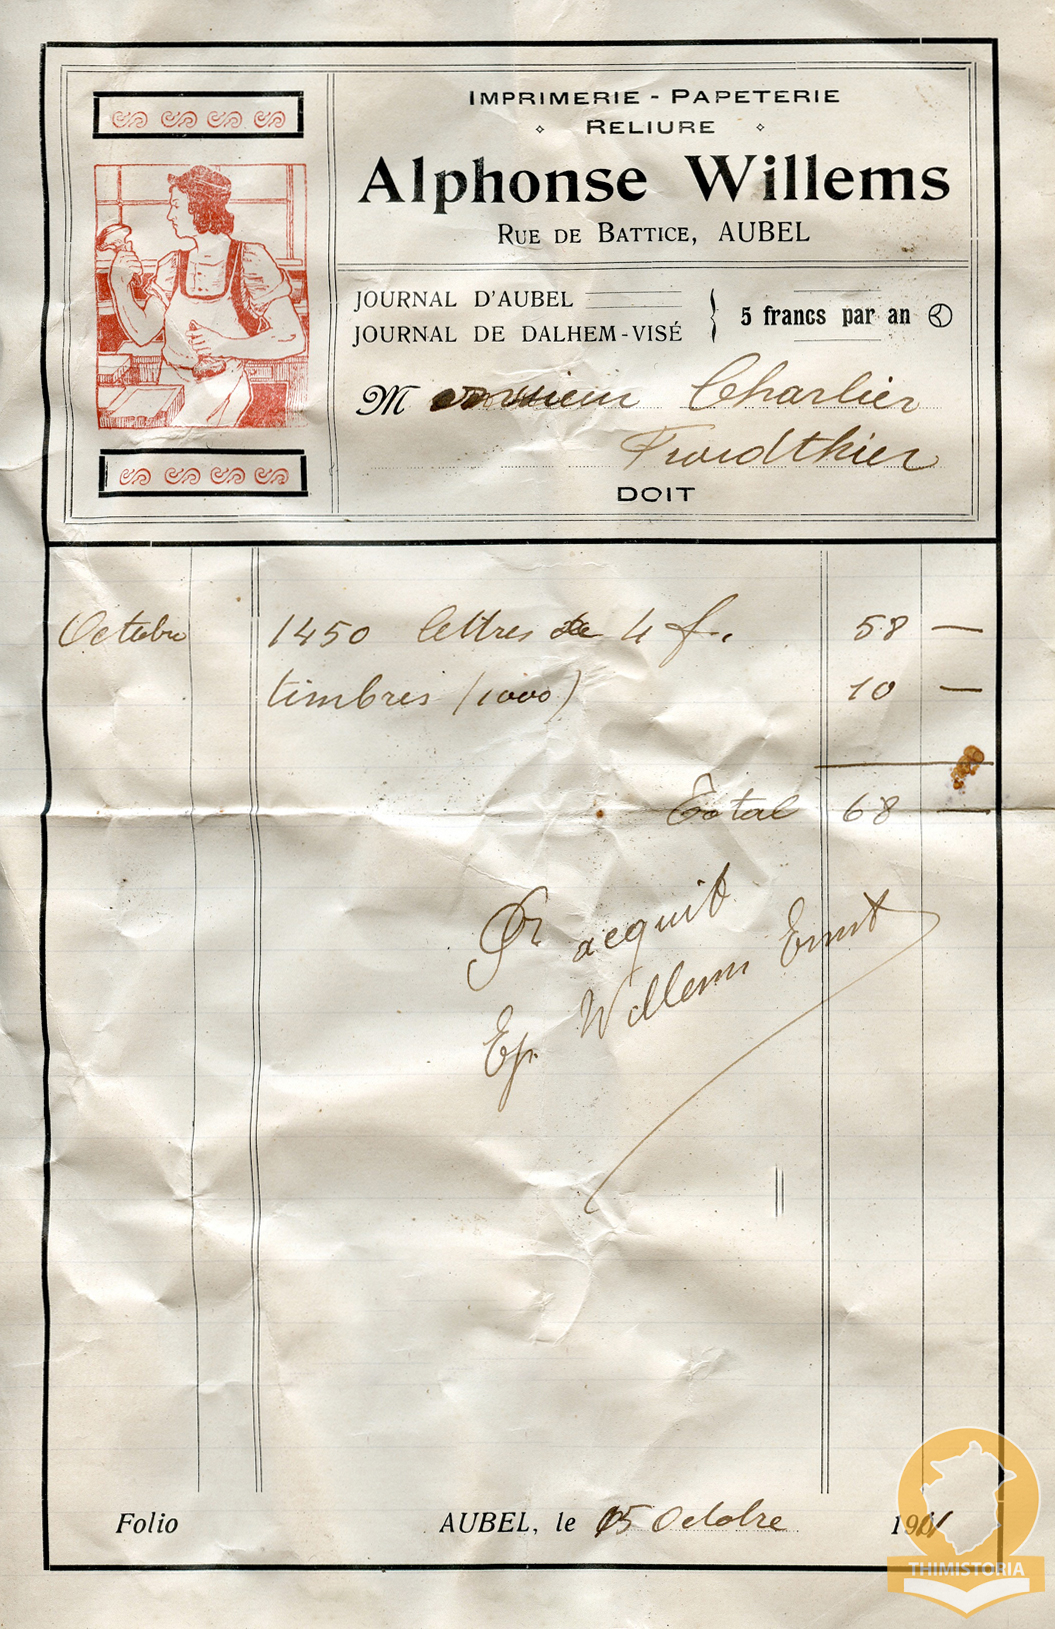 IMPRIMERIE - PAPETERIE
RELIURE
Alphonse Willems
RUE DE BATTICE, AUBEL
JOURNAL D'AUBEL
JOURNAL DE DALHEM-VISÉ
5 francs par an
Monsieur Charlier
Froidthier
DOIT
Octobre 1450 lettres de 4 f. 58 —
timbres (1000) 10 —
Total 68 —
Pr acquit
Ep. Willems Ernst
Folio AUBEL, le 15 Octobre 1911
THIMISTORIA